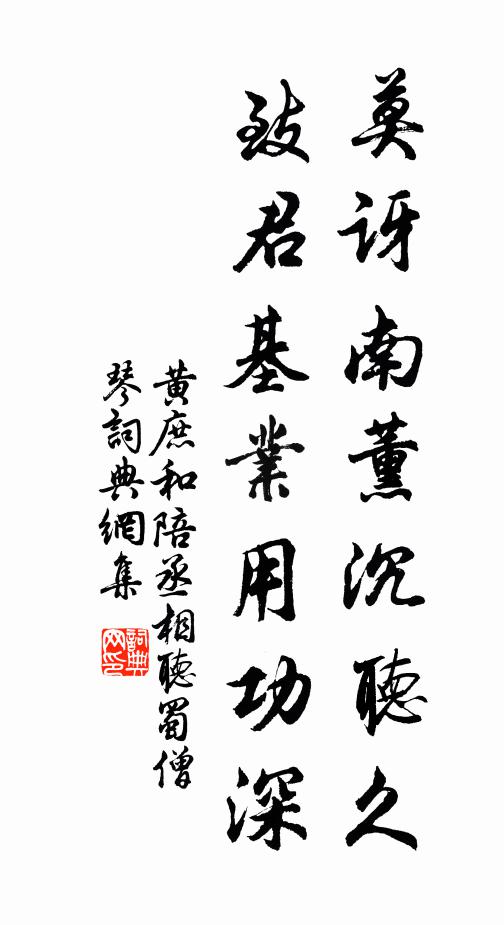 莫訝南薰沉聽久
致君基業用功深
黃庶和陪丞相聽蜀僧
琴詞典網集
詞典
网印